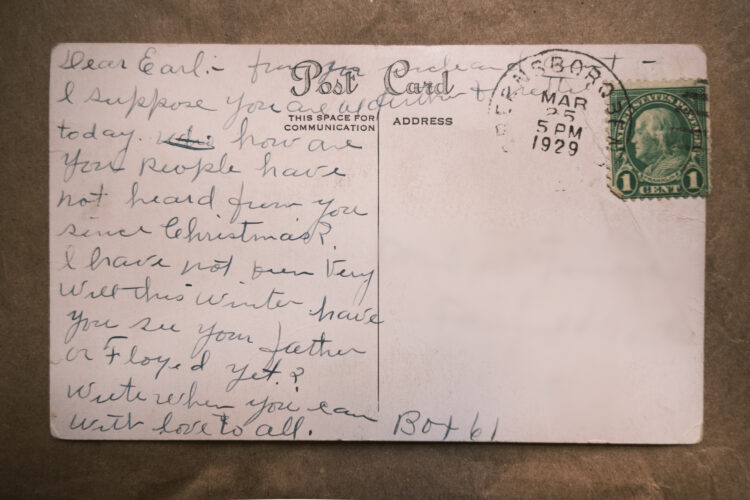 Dear Earl:- from your uncle and aunt -
Post Card
I suppose you are a
today. how are
THIS SPACE FOR
COMMUNICATION
ADDRESS
you people have
not heard from you
since Christmas?
I have not been very
well this winter have
you see your father
or Floyed yet?
write when you can
with love to all.
Box 61
GREENSBORO
MAR
25
5 PM
1929
UNITED STATES POSTAGE
1 CENT 1